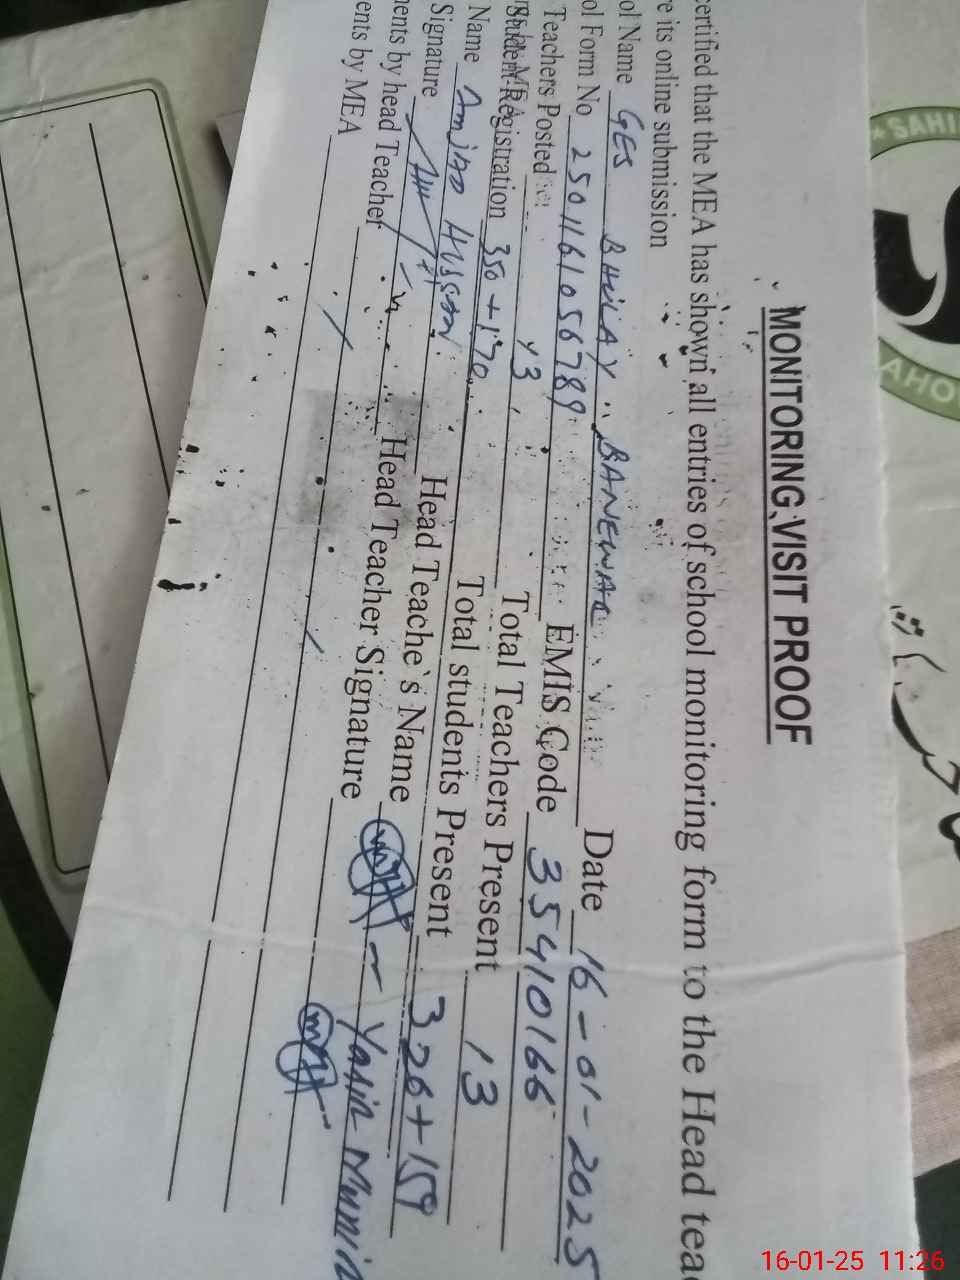 MONITORING VISIT PROOF
certified that the MEA has shown all entries of school monitoring form to the Head tea
re its online submission
ol Name GES BHULAY BANEWAL Date 16-01-2025
ol Form No 2501161056789 EMIS Code 35410166
Teachers Posted 13 Total Teachers Present 13
Student Registration 350+170 Total students Present 326+159
Name Amjad Hussain Head Teache`s Name Yasin Mumin
Signature Head Teacher Signature
ments by head Teacher
ents by MEA
SAHI
AHO
16-01-25 11:26